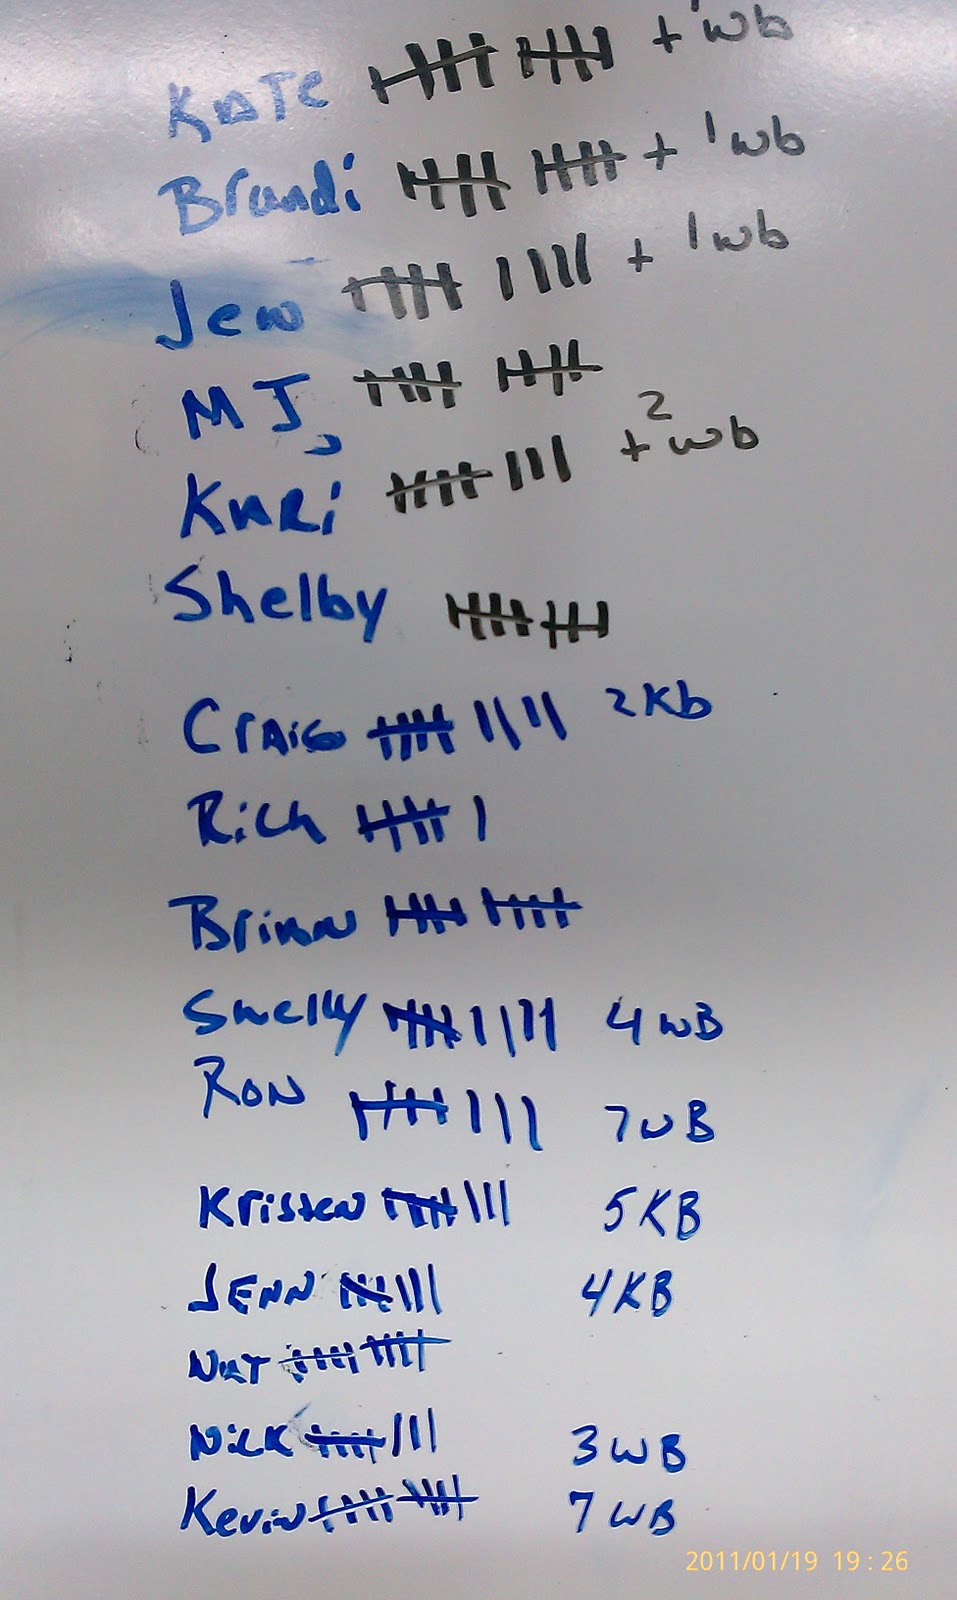 Kate + 1 wb
Brandi + 1 wb
Jen + 1 wb
MJ
Kari + 2 wb
Shelby
Craig 2 Kb
Rich
Brian
Shelly 4 WB
Ron 7 WB
Kristen 5 KB
JENN 4 KB
Nat
Nick 3 WB
Kevin 7 WB
2011/01/19 19:26